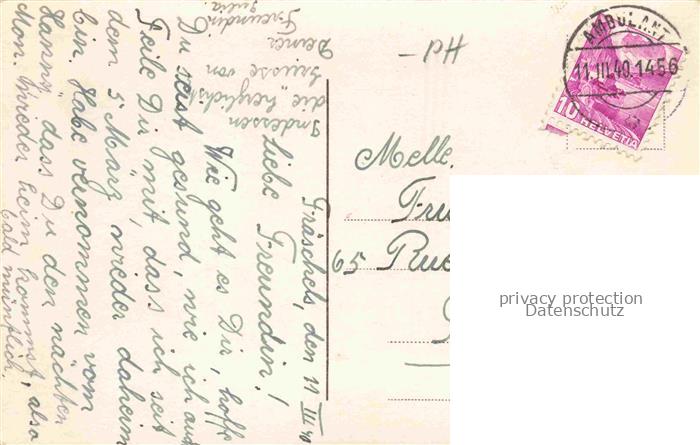 Fräschels, den 11 III 40
Liebe Freundin!
Wie geht es Dir, hoffe
Du seist gesund, wie ich auch
Teile Dir mit, dass ich seit
dem 5 März wieder daheim
bin. Habe vernommen vom
Hanny, dass Du den nächsten
Mon. wieder heim kommst, also
bald mündlich.
Indessen
die herzlichst
Grüsse von
Deiner
Freundin
Julia.
-PH
AMBULANT
11.III.40.1456
10 HELVETIA
Melle.
65 Rue
privacy protection
Datenschutz